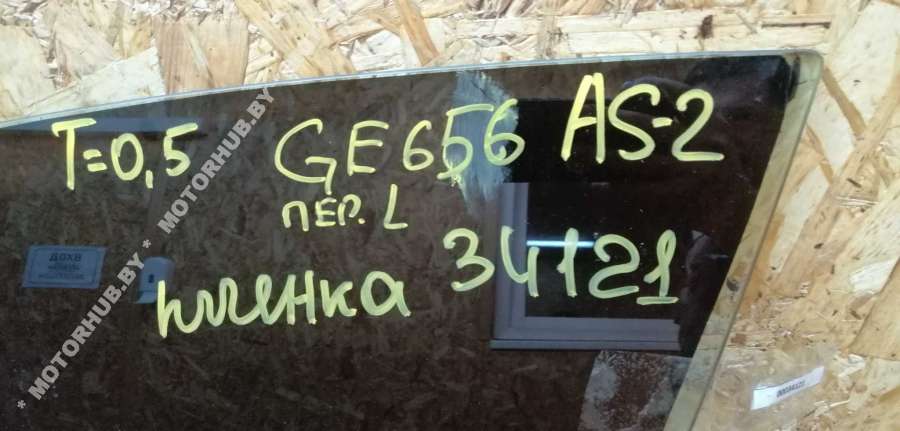 T=0,5 GE656 AS-2
ПЕР. L
пленка 34121
* MOTORHUB.BY * MOTORHUB.BY
ВХОД
00034121